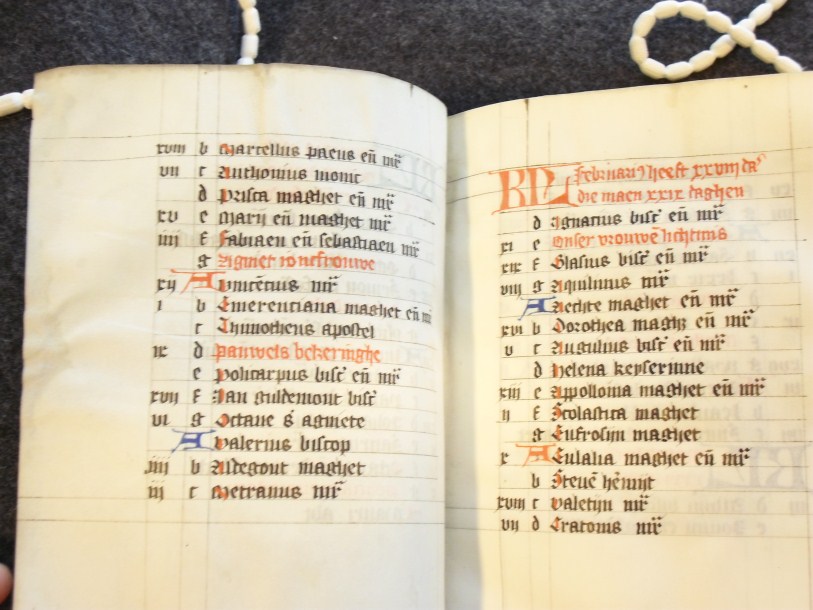 xviii b Marcellus paeus eñ mr̄
vii c Anthonius monic
d Prisca maghet eñ mr̄
xv e Marii eñ maghet mr̄
iiii f Fabiaen eñ sebastiaen mr̄
g Agniet joncfrouwe
xij A Vincencius mr̄
i b Emerenciana maghet eñ mr̄
c Thimotheus apostel
ix d Pauwels bekeringhe
e Policarpus bisc̄ eñ mr̄
xvij f Jan guldemont bisc̄
vi g Octave s̄ agniete
A Valerius biscop
xiiii b Aldegont maghet
iii c Metranus mr̄
KL Februari9 heeft xxviij da
die maen xxix daghen
d Ignatius bisc̄ eñ mr̄
xi e Onser vrouwē lichtmis
xix f Blasius bisc̄ eñ mr̄
viij g Aquilinus mr̄
A Aechte maghet eñ mr̄
xvi b Dorothea magh eñ mr̄
v c Augulius bisc̄ eñ mr̄
d Helena keyserinne
xiii e Appollonia maghet eñ mr̄
ii f Scolastica maghet
g Eufrosijn maghet
x A Eulalia maghet eñ mr̄
b Steuē hēmijt
xviii c Valetijn mr̄
vij d Cratonis mr̄